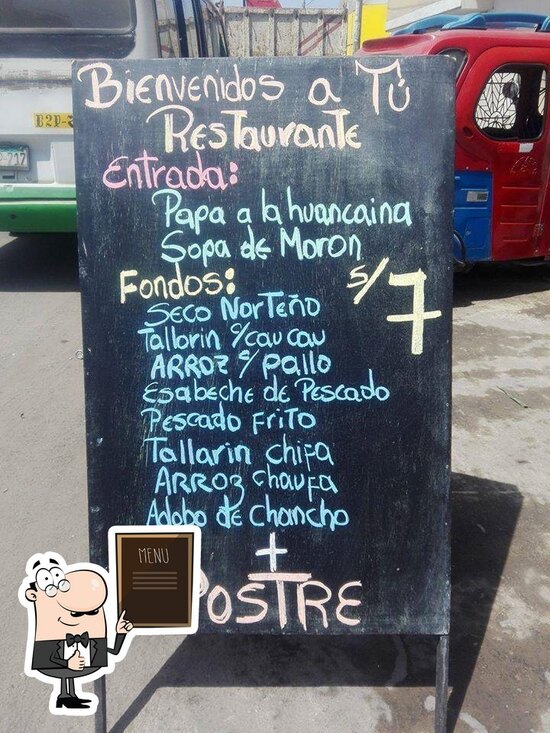 Bienvenidos a Tú
Restaurante
Entrada:
Papa a la huancaina
Sopa de Moron
Fondos: S/7
Seco Norteño
Tallorin c/cau cau
Arroz c/ pallo
Esabeche de Pescado
Pescado frito
Tallarin chifa
Arroz chaufa
Adobo de chancho
+
Postre
MENU